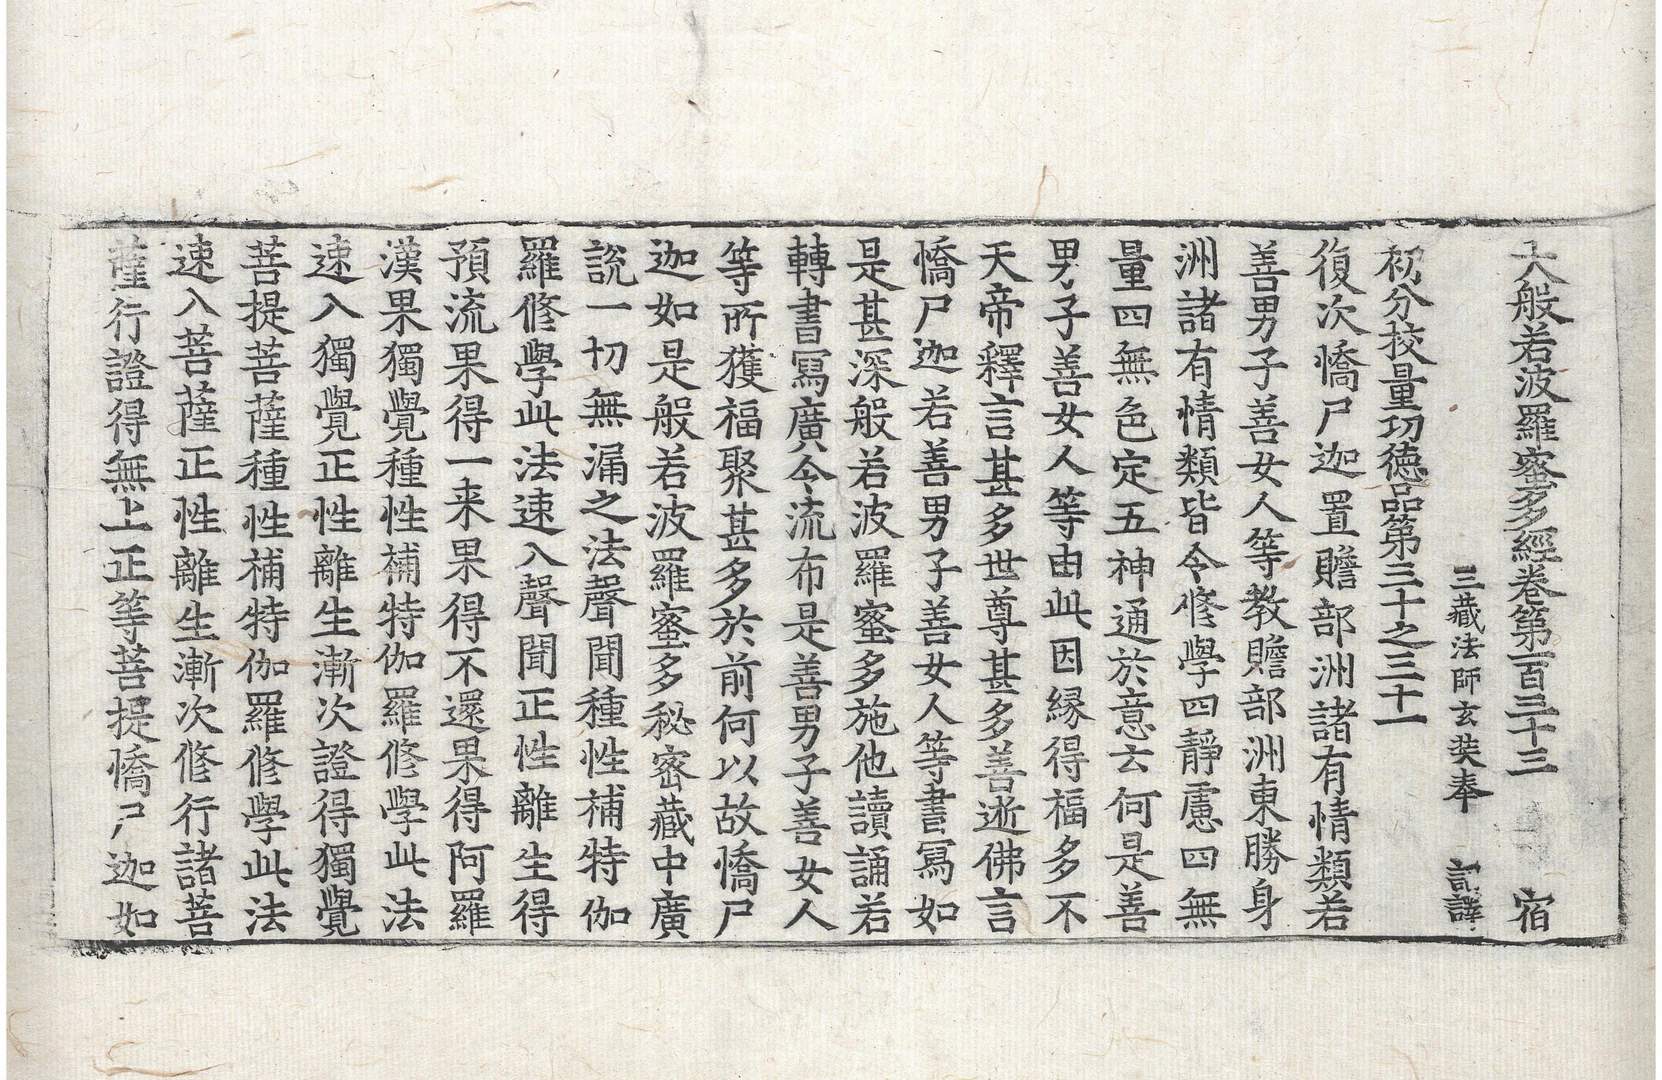 大般若波羅蜜多經卷第一百三十三 宿
三藏法師玄奘奉 詔譯
初分校量功德品第三十之三十一
復次憍尸迦置贍部洲諸有情類若
善男子善女人等教贍部洲東勝身
洲諸有情類皆令修學四靜慮四無
量四無色定五神通於意云何是善
男子善女人等由此因緣得福多不
天帝釋言甚多世尊甚多善逝佛言
憍尸迦若善男子善女人等書寫如
是甚深般若波羅蜜多施他讀誦若
轉書寫廣令流布是善男子善女人
等所獲福聚甚多於前何以故憍尸
迦如是般若波羅蜜多秘密藏中廣
說一切無漏之法聲聞種性補特伽
羅修學此法速入聲聞正性離生得
預流果得一来果得不還果得阿羅
漢果獨覺種性補特伽羅修學此法
速入獨覺正性離生漸次證得獨覺
菩提菩薩種性補特伽羅修學此法
速入菩薩正性離生漸次修行諸菩
薩行證得無上正等菩提憍尸迦如